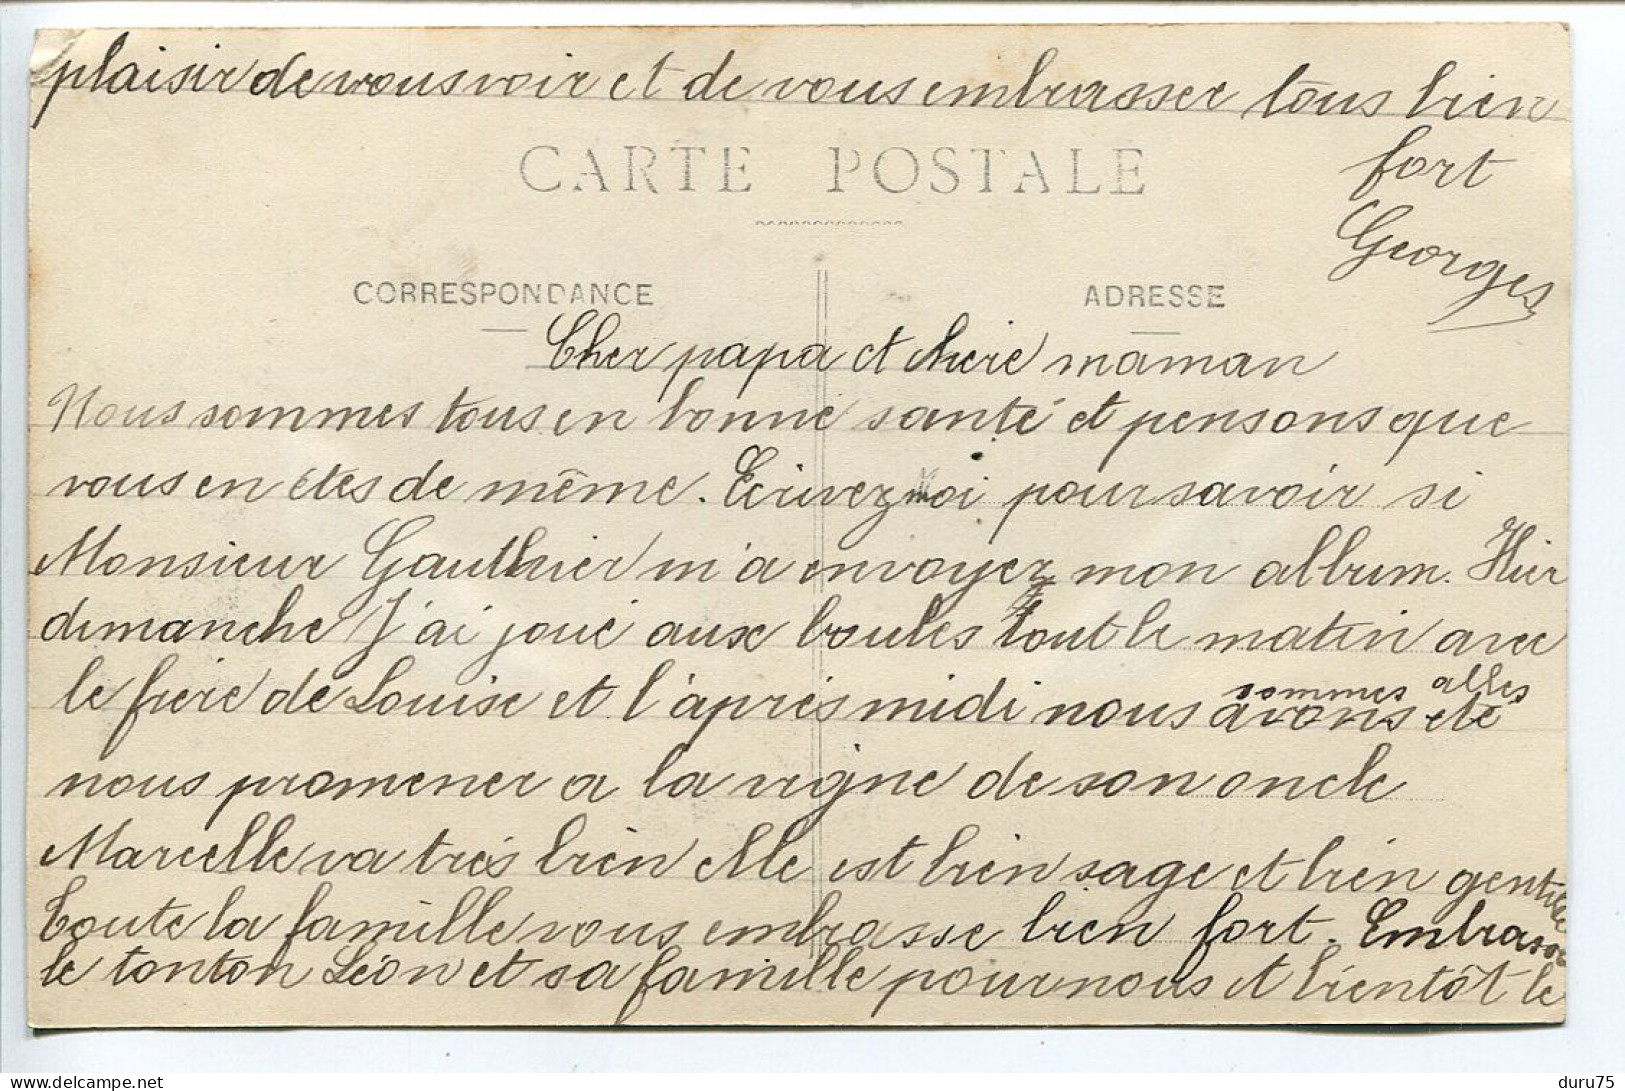 plaisir de vous voir et de vous embrasser tous bien
fort
Georges
CARTE POSTALE
CORRESPONDANCE
ADRESSE
Cher papa et chere maman
Nous sommes tous en bonne santé et pensons que
vous en étes de même. Ecrivez moi pour savoir si
Monsieur Gauthier m'a envoyez mon album. Hier
dimanche J'ai joué aux boules tout le matin avec
le frère de Louise et l'après midi nous avons eté
sommes alles
nous promener a la vigne de son oncle
Marcelle va très bien elle est bien sage et bien gentille
Toute la famille vous embrasse bien fort. Embrasse
le tonton Léon et sa famille pour nous et bientôt le
duru75